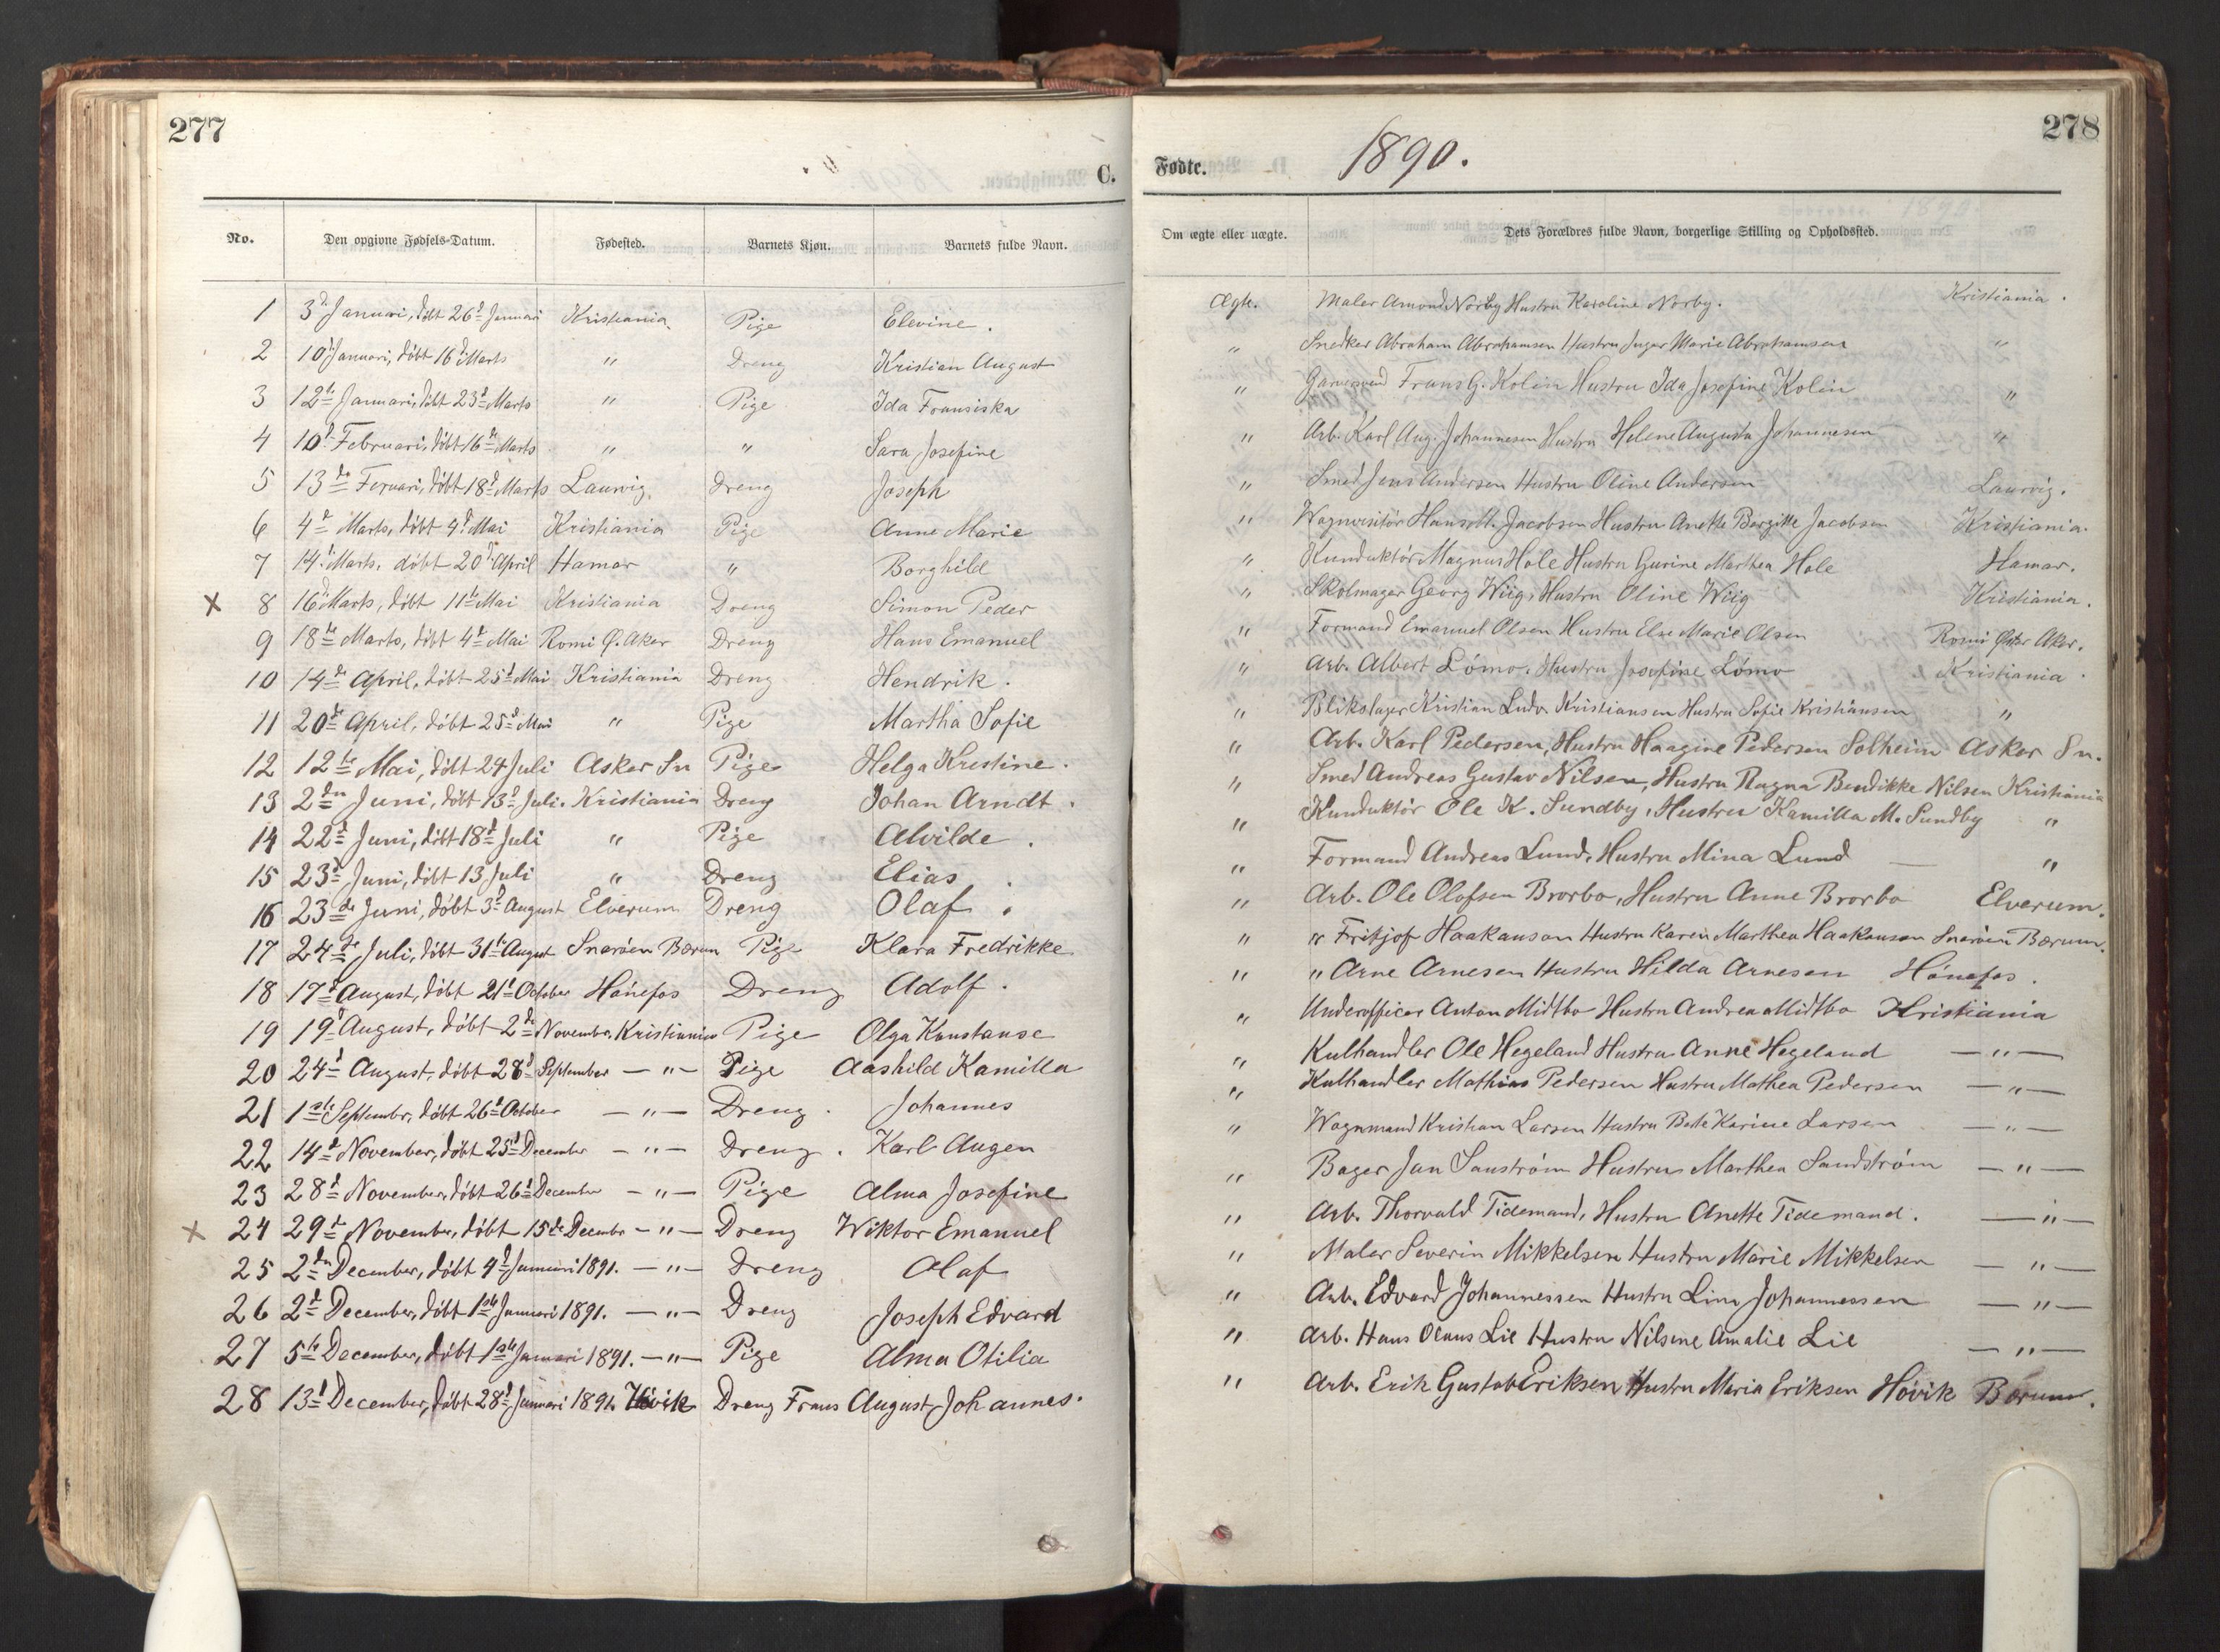 277
278
C.
Fødte.
1890.
No.
Den opgivne Fødsels-Datum.
Fødested.
Barnets Kjøn.
Barnets fulde Navn.
Om ægte eller uægte.
Dets Forældres fulde Navn, borgerlige Stilling og Opholdssted.
1 3d Januari, døbt 26d Januari Kristiania. Pige Elevine. Ægte. Maler Amund Norby Hustru Karoline Norby. Kristiania.
2 10d Januari, døbt 16d Marts " Dreng Kristian August " Snedker Abraham Abrahamsen Hustru Inger Marie Abrahamsen "
3 12te Januari, døbt 23d Marts " Pige Ida Fransiska " Frans G. Kolin Hustru Ida Josefine Kolin "
4 10d Februari, døbt 16de Marts " " Sara Josefine " Arb. Karl Aug. Johannesen Hustru Helene Augusta Johannesen "
5 13de Feruari, døbt 18d Marts Laurvig. Dreng Joseph " Smed Jens Andersen Hustru Oline Andersen Laurvig.
6 4d Marts, døbt 4d Mai Kristiania Pige Anne Marie " Wognvisitør Hans M. Jacobsen Hustru Anette Bergitte Jacobsen Kristiania.
7 14d Marts, døbt 20d April Hamar " Borghild " Kunduktör Magnus Hole Hustru Gurine Marthea Hole Hamar.
x 8 16d Marts, døbt 11te Mai Kristiania Dreng Simon Peder " Skolmager Georg Wiig, Hustru Oline Wiig Kristiania.
9 18de Marts, døbt 4d Mai Romi Ø. Aker Dreng Hans Emanuel " Formand Emanuel Olsen Hustru Else Marie Olsen Romi Øster Aker.
10 14de April, døbt 25d Mai Kristiania Dreng Hendrik. " Arb. Albert Lömo. Hustru Josefine Lömo Kristiania.
11 20de April, døbt 25d Mai " Pige Martha Sofie " Blikslager Kristian Ludv. Kristiansen Hustru Sofie Kristiansen "
12 12te Mai, døbt 24 Juli Asker Sn Pige Helga Kristine. " Arb. Karl Pedersen, Hustru Haagine Pedersen Solheim Asker Sn.
13 2den Juni, døbt 13d Juli. Kristiania Dreng Johan Arndt. " Smed Andreas Gustav Nilsen, Hustru Ragna Bendikke Nilsen Kristiania
14 22d Juni, døbt 18d Juli " Pige Alvilde. " Kunduktör Ole K. Sundby, Hustru Kamilla M. Sundby "
15 23d Juni, døbt 13 Juli " Dreng Elias. " Formand Andreas Lund, Hustru Mina Lund — "
16 23de Juni, døbt 3d August Elverum Dreng Olaf. " Arb. Ole Olofsen Brorbo, Hustru Anne Brorbo Elverum.
17 24de Juli, døbt 31te August Snaröen Bærum Pige Klara Fredrikke " " Fritjof Haakansen Hustru Karen Marthea Haakansen Snaröen Bærum.
18 17d August, døbt 21d October Hönefos Dreng Adolf. " " Arne Arnesen Hustru Hilda Arnesen Hönefos.
19 19d August, døbt 2de Novembr. Kristiania Pige Olga Konstanse " Underofficer Anton Midtbo Hustru Andrea Midtbo Kristiania
20 24d August, døbt 28d September — " — Pige Aashild Kamilla " Kulhandler Ole Hegeland Hustru Anne Hegeland — " —
21 1ste Septembr, døbt 26d October — " — Dreng. Johannes " Kulhandler Mathias Pedersen Hustru Mathea Pedersen — " —
22 14d November, døbt 25d December — " — Dreng. Karl Augen " Wognmand Kristian Larsen Hustru Bete Karine Larsen — " —
23 28d November, døbt 26d December — " — Pige Alma Josefine " Bager Jan Sanström Hustru Marthea Sandström — " —
x 24 29de November, døbt 15de Decembr — " — Dreng Wiktor Emanuel " Arb. Thorvald Tidemand, Hustru Anette Tidemand. — " —
25 2den December, døbt 4d Januari 1891. — " — Dreng Olaf " Maler Severin Mikkelsen Hustru Marie Mikkelsen — " —
26 2d December, døbt 1ste Januari 1891. — " — Dreng Joseph Edvard " Arb. Edvard Johannessen Hustru Lina Johannessen — " —
27 5te December, døbt 1ste Januari 1891. — " — Pige Alma Otilia " Arb. Hans Olaus Lie Hustru Nilsine Amalie Lie — " —
28 13d December, døbt 28d Januari 1891. Hövik Dreng Frans August Johannes. " Arb. Erik Gustab Eriksen Hustru Maria Eriksen Hövik Bærum.